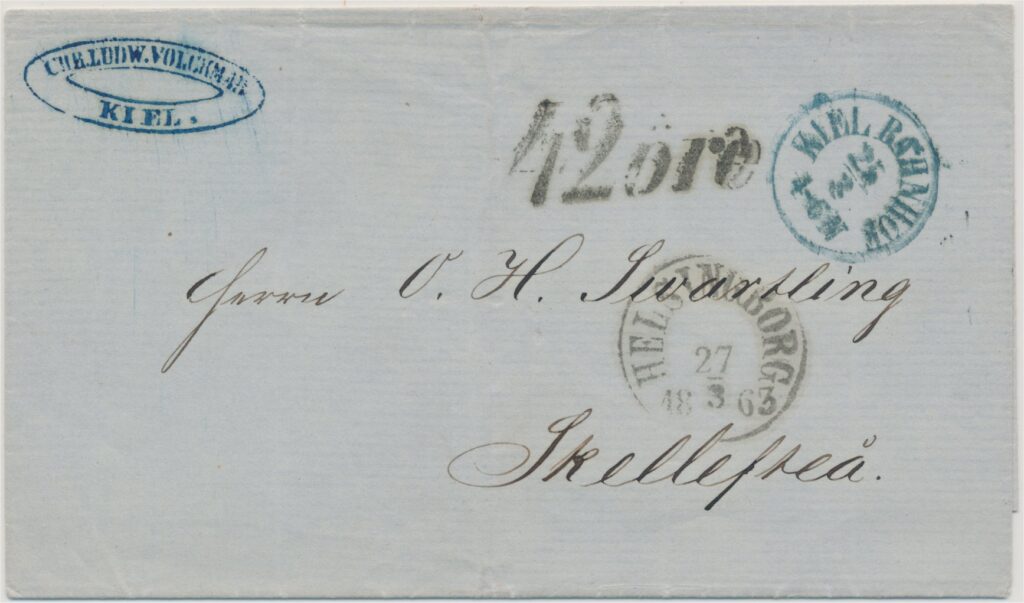 CHR. LUDW. VOLCKMAR
KIEL.
42 öre
KIEL BAHNHOF
25/3
Herrn O. H. Swartling
HELSINGBORG
27
3
1863
Skellefteå.